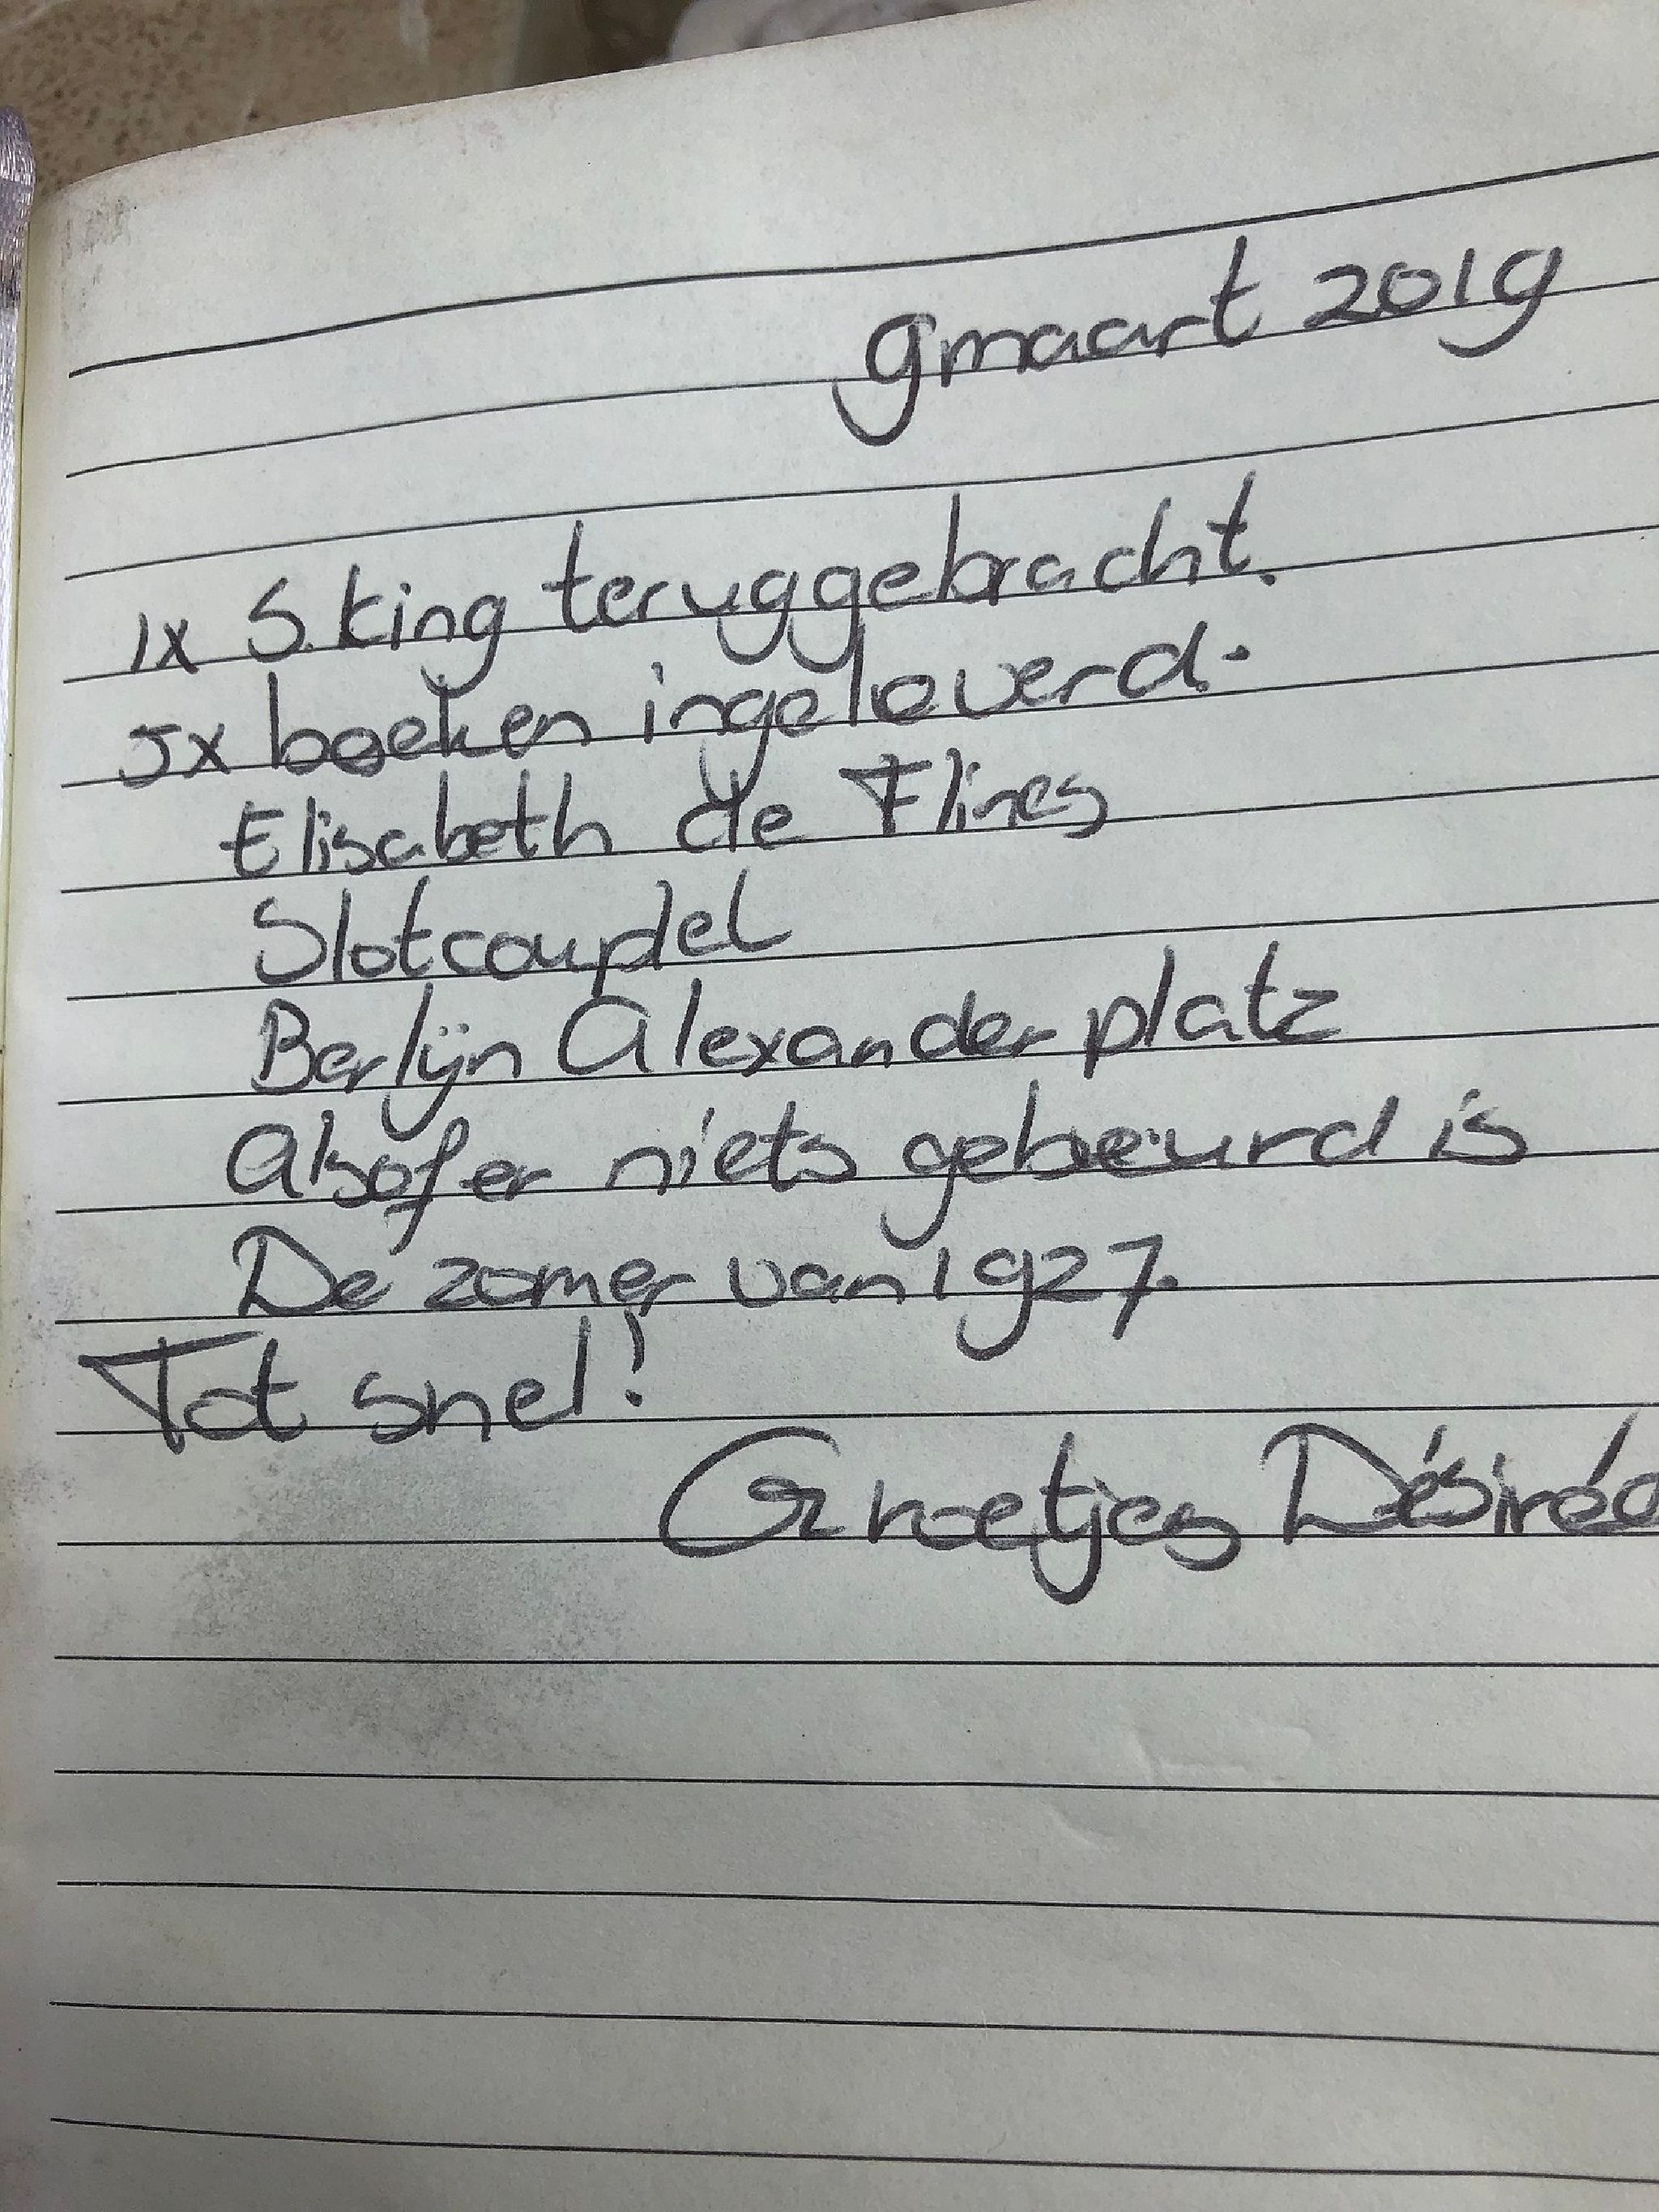 9 maart 2019
1x S. King teruggebracht.
5x boeken ingeleverd.
Elisabeth de Flines
Slotcouplet
Berlijn Alexanderplatz
Alsof er niets gebeurd is
De zomer van 1927.
Tot snel!
Groetjes Désirée